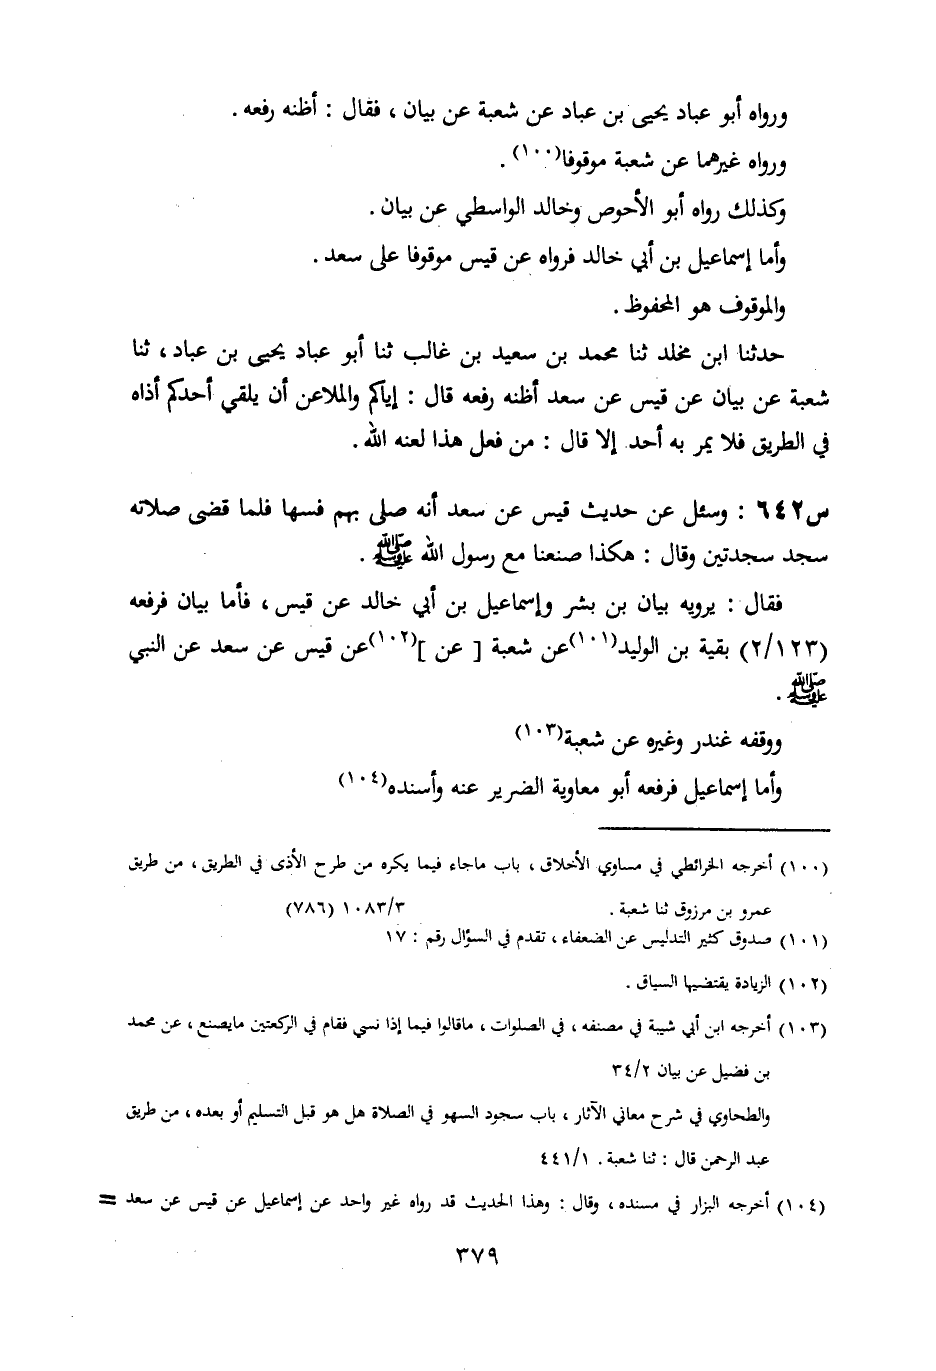 ورواه أبو عباد يحيى بن عباد عن شعبة عن بيان ، فقال : أظنه رفعه .
ورواه غيرهما عن شعبة موقوفا(١٠٠) .
وكذلك رواه أبو الأحوص وخالد الواسطي عن بيان .
وأما إسماعيل بن أبي خالد فرواه عن قيس موقوفا على سعد .
والموقوف هو المحفوظ .
حدثنا ابن مخلد ثنا محمد بن سعيد بن غالب ثنا أبو عباد يحيى بن عباد ، ثنا
شعبة عن بيان عن قيس عن سعد أظنه رفعه قال : إياكم والملاعن أن يلقي أحدكم أذاه
في الطريق فلا يمر به أحد إلا قال : من فعل هذا لعنه الله .
س٦٤٢ : وسئل عن حديث قيس عن سعد أنه صلى بهم فسها فلما قضى صلاته
سجد سجدتين وقال : هكذا صنعنا مع رسول الله ﷺ .
فقال : يرويه بيان بن بشر وإسماعيل بن أبي خالد عن قيس ، فأما بيان فرفعه
(٢/١٢٣) بقية بن الوليد(١٠١)عن شعبة [ عن ](١٠٢)عن قيس عن سعد عن النبي
ﷺ .
ووقفه غندر وغيره عن شعبة(١٠٣)
وأما إسماعيل فرفعه أبو معاوية الضرير عنه وأسنده(١٠٤)
(١٠٠) أخرجه الخرائطي في مساوي الأخلاق ، باب ماجاء فيما يكره من طرح الأذى في الطريق ، من طريق
عمرو بن مرزوق ثنا شعبة . ١٠٨٣/٣ (٧٨٦)
(١٠١) صدوق كثير التدليس عن الضعفاء ، تقدم في السؤال رقم : ١٧
(١٠٢) الزيادة يقتضيها السياق .
(١٠٣) أخرجه ابن أبي شيبة في مصنفه ، في الصلوات ، ماقالوا فيما إذا نسي فقام في الركعتين مايصنع ، عن محمد
بن فضيل عن بيان ٣٤/٢
والطحاوي في شرح معاني الآثار ، باب سجود السهو في الصلاة هل هو قبل التسليم أو بعده ، من طريق
عبد الرحمن قال : ثنا شعبة . ٤٤١/١
(١٠٤) أخرجه البزار في مسنده ، وقال : وهذا الحديث قد رواه غير واحد عن إسماعيل عن قيس عن سعد =
٣٧٩